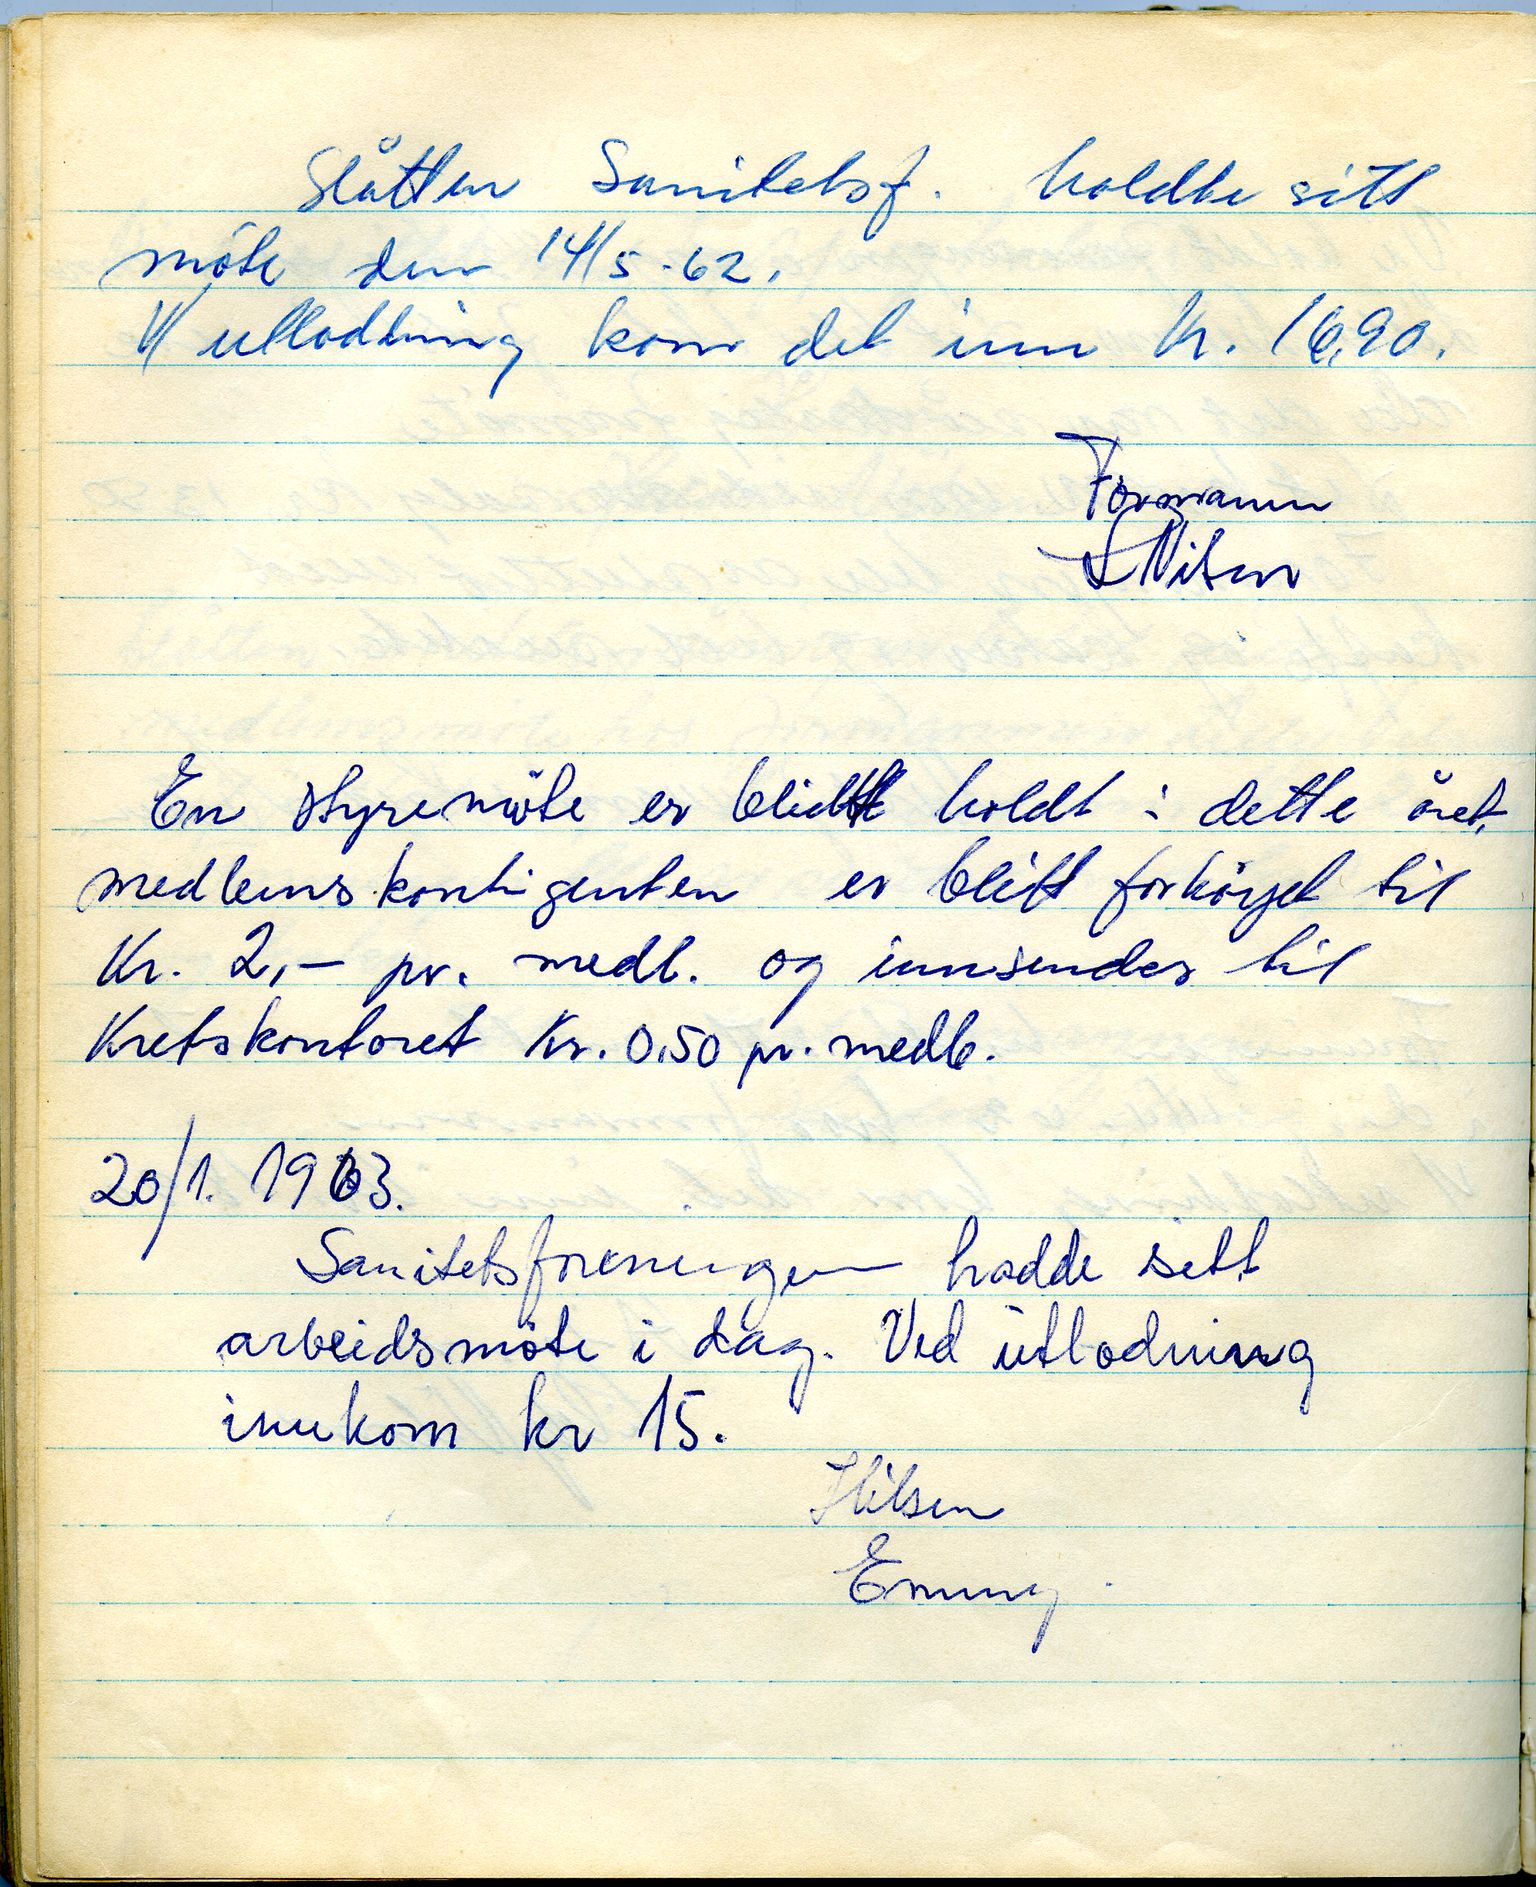 Slåtten Sanitetsf. holdte sitt
möte den 14/5-62.
V/ utloddning kom det inn Kr. 16,90.
Formann
LNilsen
En styremöte er blitt holdt i dette året,
medlemskontigenten er blitt forhöyet til
Kr. 2,- pr. medl. og innsendes til
Kretskontoret Kr. 0,50 pr. medl.
20/1. 1963.
Sanitetsforeningen hadde sitt
arbeidsmöte i dag. Ved utlodning
innkom kr 15.
Emmy